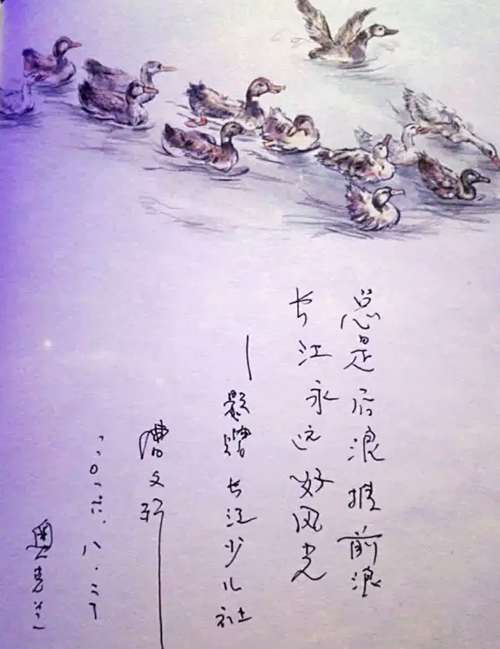 总是后浪推前浪
长江永远好风光
—题赠长江少儿社
曹文轩
二〇一六.八.二
奥克兰